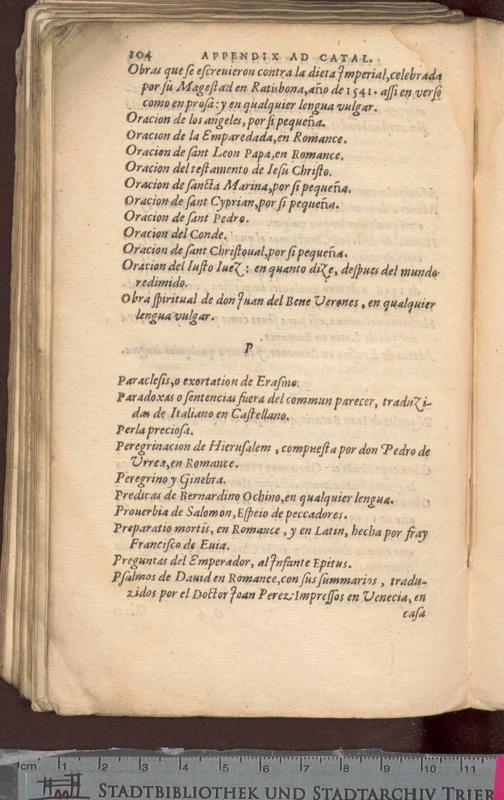 104 APPENDIX AD CATAL.
Obras que se escreuieron contra la dieta Imperial,celebrada
por su Magestad en Ratisbona,año de 1541. assi en verso
como en prosa: y en qualquier lengua vulgar.
Oracion de los angeles, por si pequeña.
Oracion de la Emparedada,en Romance.
Oracion de sant Leon Papa,en Romance.
Oracion del testamento de Iesu Christo.
Oracion de sancta Marina,por si pequeña.
Oracion de sant Cyprian,por si pequeña.
Oracion de sant Pedro.
Oracion del Conde.
Oracion de sant Christoual,por si pequeña.
Oracion del Iusto Iuez: en quanto dize, despues del mundo
redimido.
Obra spiritual de don Juan del Bene Verones, en qualquier
lengua vulgar.
P
Paraclesis,o exortation de Erasmo.
Paradoxas o sentencias fuera del commun parecer, traduzi-
das de Italiano en Castellano.
Perla preciosa.
Peregrinacion de Hierusalem, compuesta por don Pedro de
Vrrea,en Romance.
Peregrino y Ginebra.
Predicas de Bernardino Ochino,en qualquier lengua.
Prouerbia de Salomon, Espeio de peccadores.
Preparatio mortis, en Romance, y en Latin, hecha por fray
Francisco de Euia.
Preguntas del Emperador, al Infante Epitus.
Psalmos de Dauid en Romance,con sus summarios, tradu-
zidos por el Doctor Joan Perez: Impressos en Venecia, en
casa
cm 1 2 3 4 5 6 7 8 9 10 11
STADTBIBLIOTHEK UND STADTARCHIV TRIER